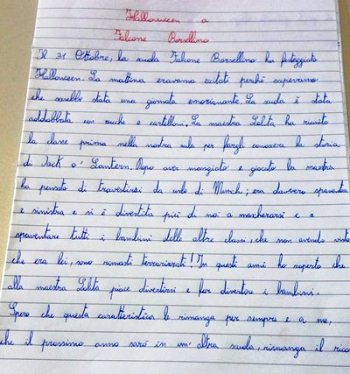 Halloween a
Falcone Borsellino
Il 31 Ottobre, la scuola Falcone Borsellino ha festeggiato
Halloween. La mattina eravamo eccitati perché sapevamo
che sarebbe stata una giornata emozionante. La scuola è stata
addobbata con zucche e cartelloni. La maestra Lolita ha riunito
la classe prima nella nostra aula per fargli conoscere la storia
di Jack o' Lantern. Dopo aver mangiato e giocato la maestra
ha pensato di travestirsi da urlo di Munch; era davvero spaventosa
e sinistra e si è divertita più di noi a mascherarsi e a
spaventare tutti i bambini delle altre classi, che non avendo visto
che era lei, sono rimasti terrorizzati! In questi anni ho scoperto che
alla maestra Lolita piace divertirsi e far divertire i bambini.
Spero che questa caratteristica le rimanga per sempre e a me,
che il prossimo anno sarò in un'altra scuola, rimanga il